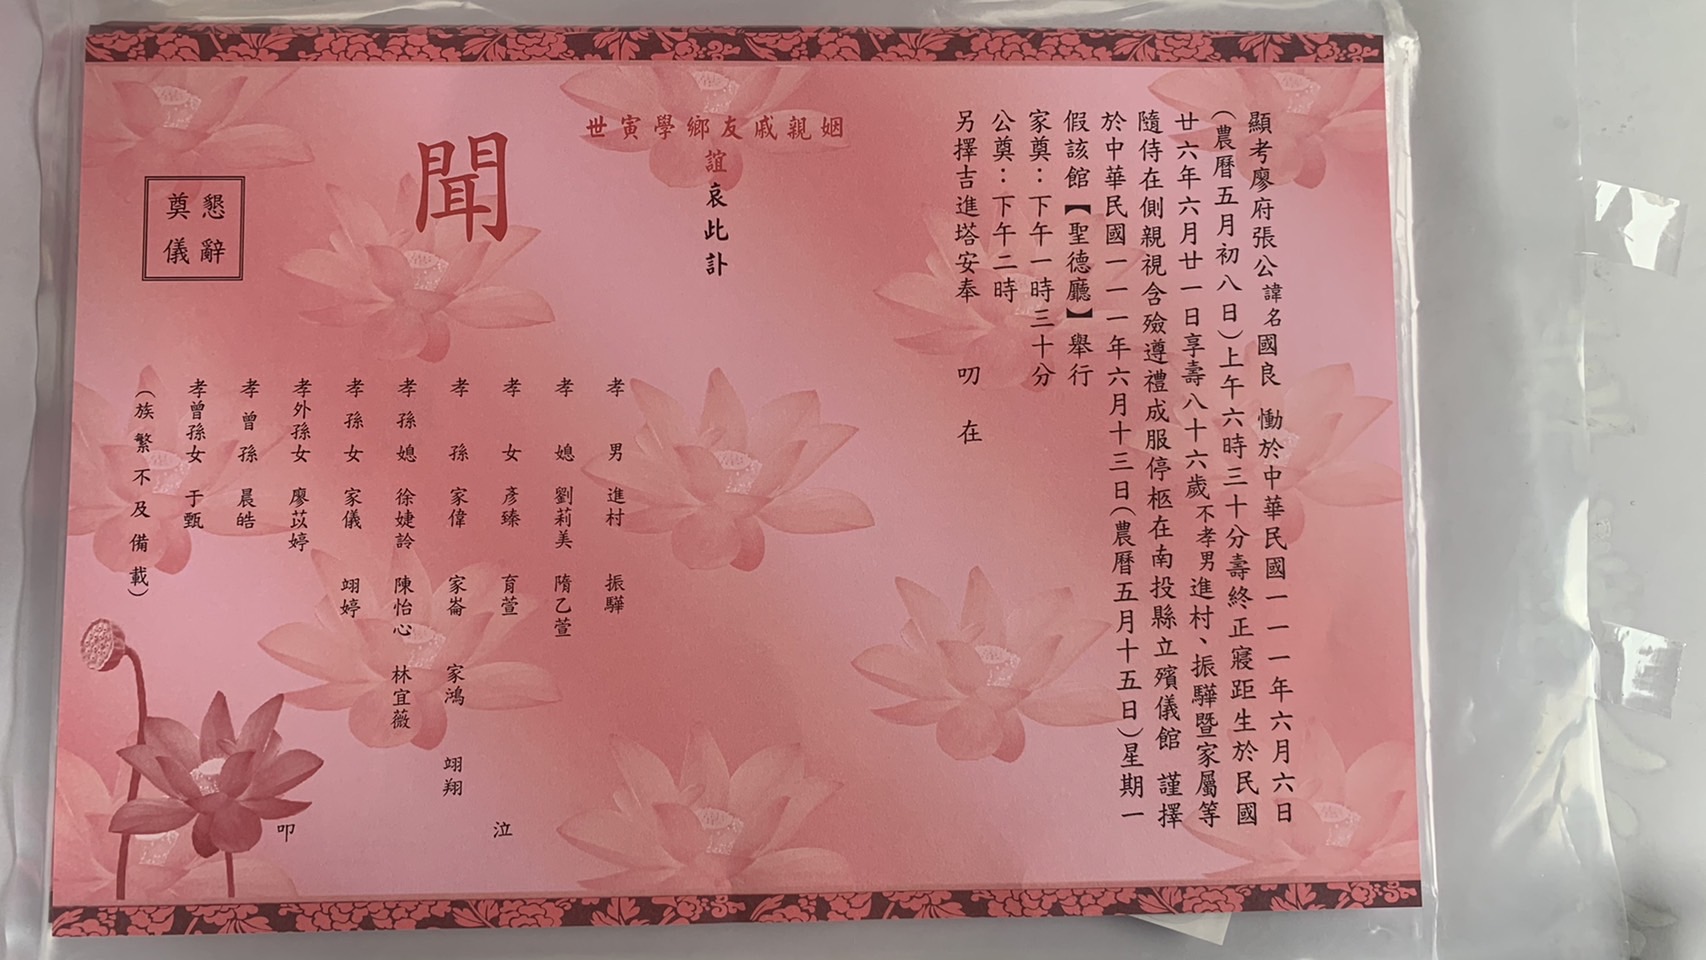 顯考廖府張公諱名國良 慟於中華民國一一一年六月六日
（農曆五月初八日）上午六時三十分壽終正寢距生於民國
廿六年六月廿一日享壽八十六歲不孝男進村、振驊暨家屬等
隨侍在側親視含殮遵禮成服停柩在南投縣立殯儀館 謹擇
於中華民國一一一年六月十三日（農曆五月十五日）星期一
假該館【聖德廳】舉行
家奠：下午一時三十分
公奠：下午二時
另擇吉進塔安奉 叨 在
世寅學鄉友戚親姻
誼哀此訃
聞
孝男 進村 振驊
孝媳 劉莉美 隋乙萱
孝女 彥臻 育萱 泣
孝孫 家偉 家崙 家鴻 翊翔
孝孫媳 徐婕詅 陳怡心 林宜薇
孝孫女 家儀 翊婷
孝外孫女 廖苡婷 叩
孝曾孫 晨皓
孝曾孫女 于甄
（族繁不及備載）
懇辭
奠儀